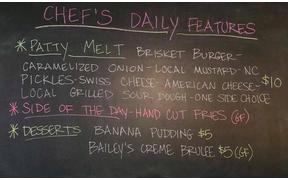 CHEF'S DAILY FEATURES
* PATTY MELT BRISKET BURGER-
CARAMELIZED ONION-LOCAL MUSTARD-NC
PICKLES-SWISS CHEESE-AMERICAN CHEESE- $10
LOCAL GRILLED SOUR DOUGH-ONE SIDE CHOICE
* SIDE OF THE DAY-HAND CUT FRIES (GF)
* DESSERTS BANANA PUDDING $5
BAILEY'S CREME BRULEE $5 (GF)